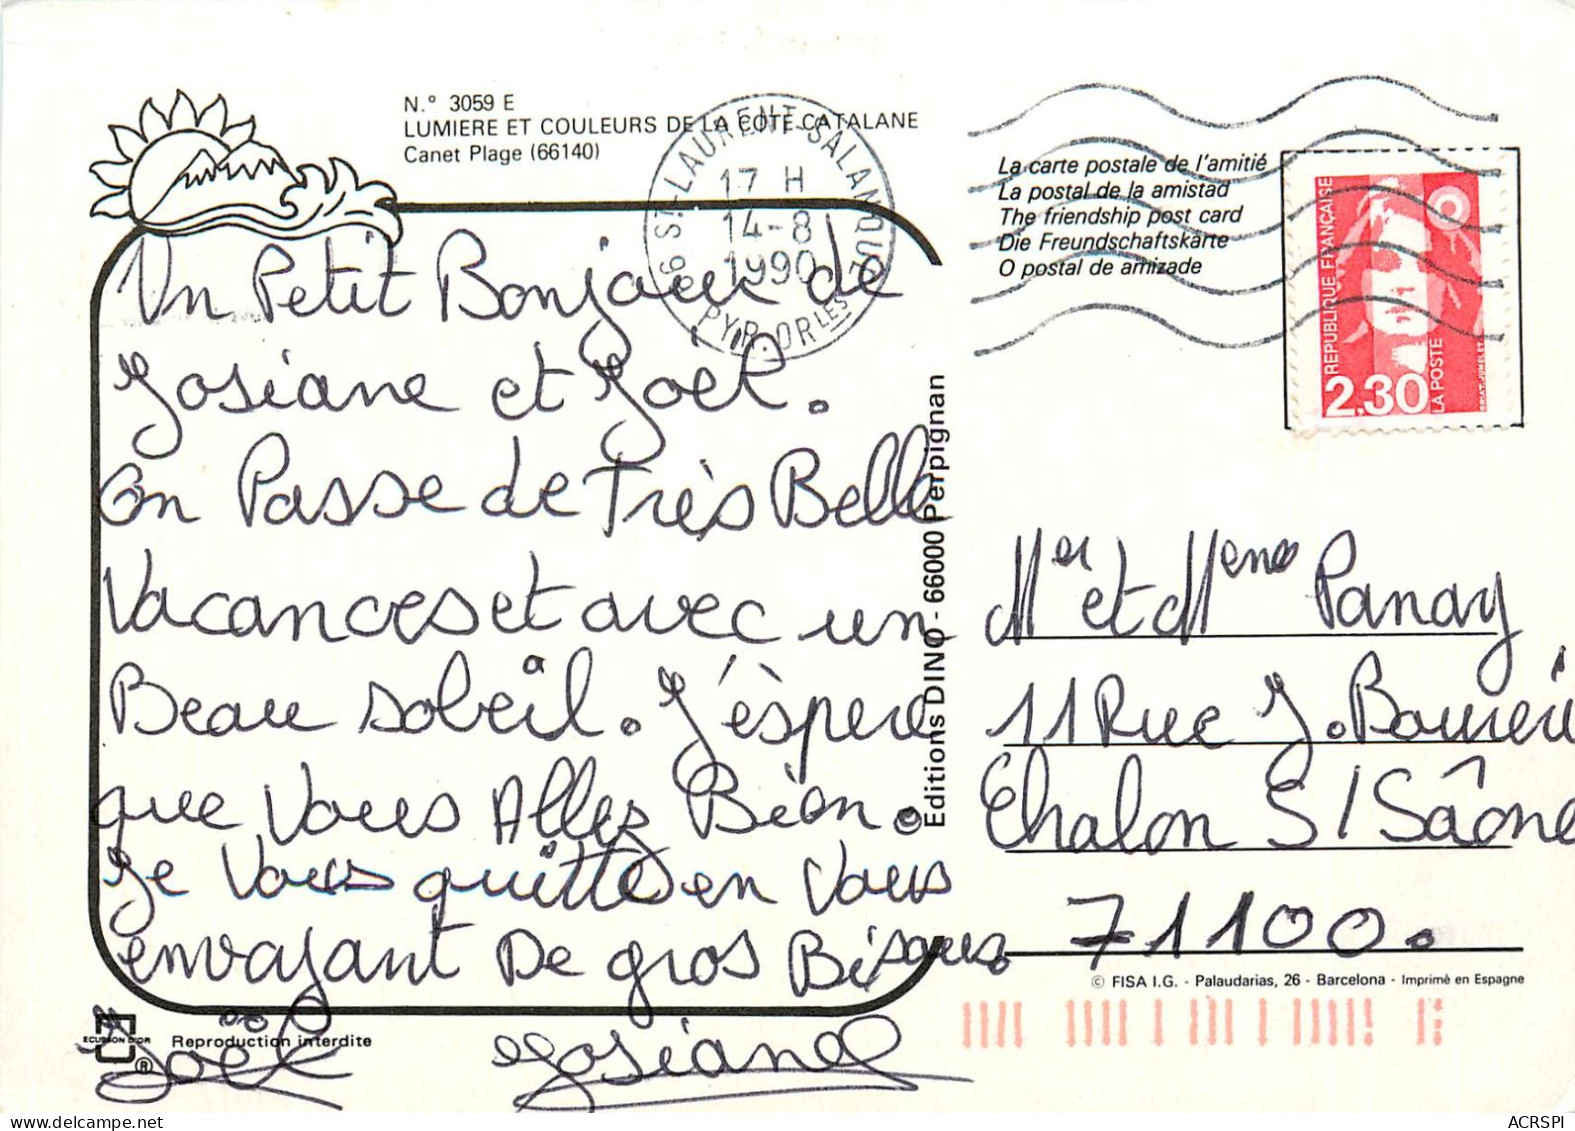 N.º 3059 E
LUMIERE ET COULEURS DE LA COTE CATALANE
Canet Plage (66140)
66 ST-LAURENT-SALANQUE
17 H
14-8
1990
PYR. ORLES
La carte postale de l'amitié
La postal de la amistad
The friendship post card
Die Freundschaftskarte
O postal de amizade
REPUBLIQUE FRANÇAISE
2,30
LA POSTE
Un Petit Bonjour de
Josiane et Joël.
On Passe de Très Belle
Vacances et avec un
Beau soleil. J'éspere
que Vous Allez Bien.
Je Vous quitte en Vous
envoyant De gros Bisous.
Joël Josiane
Editions DINO - 66000 Perpignan
Mer et Mene Panay
11 Rue J.
Chalon S/Saône
71100.
© FISA I.G. - Palaudarias, 26 - Barcelona - Imprimé en Espagne
ECUSSON D'OR
®
Reproduction interdite
ACRSPI